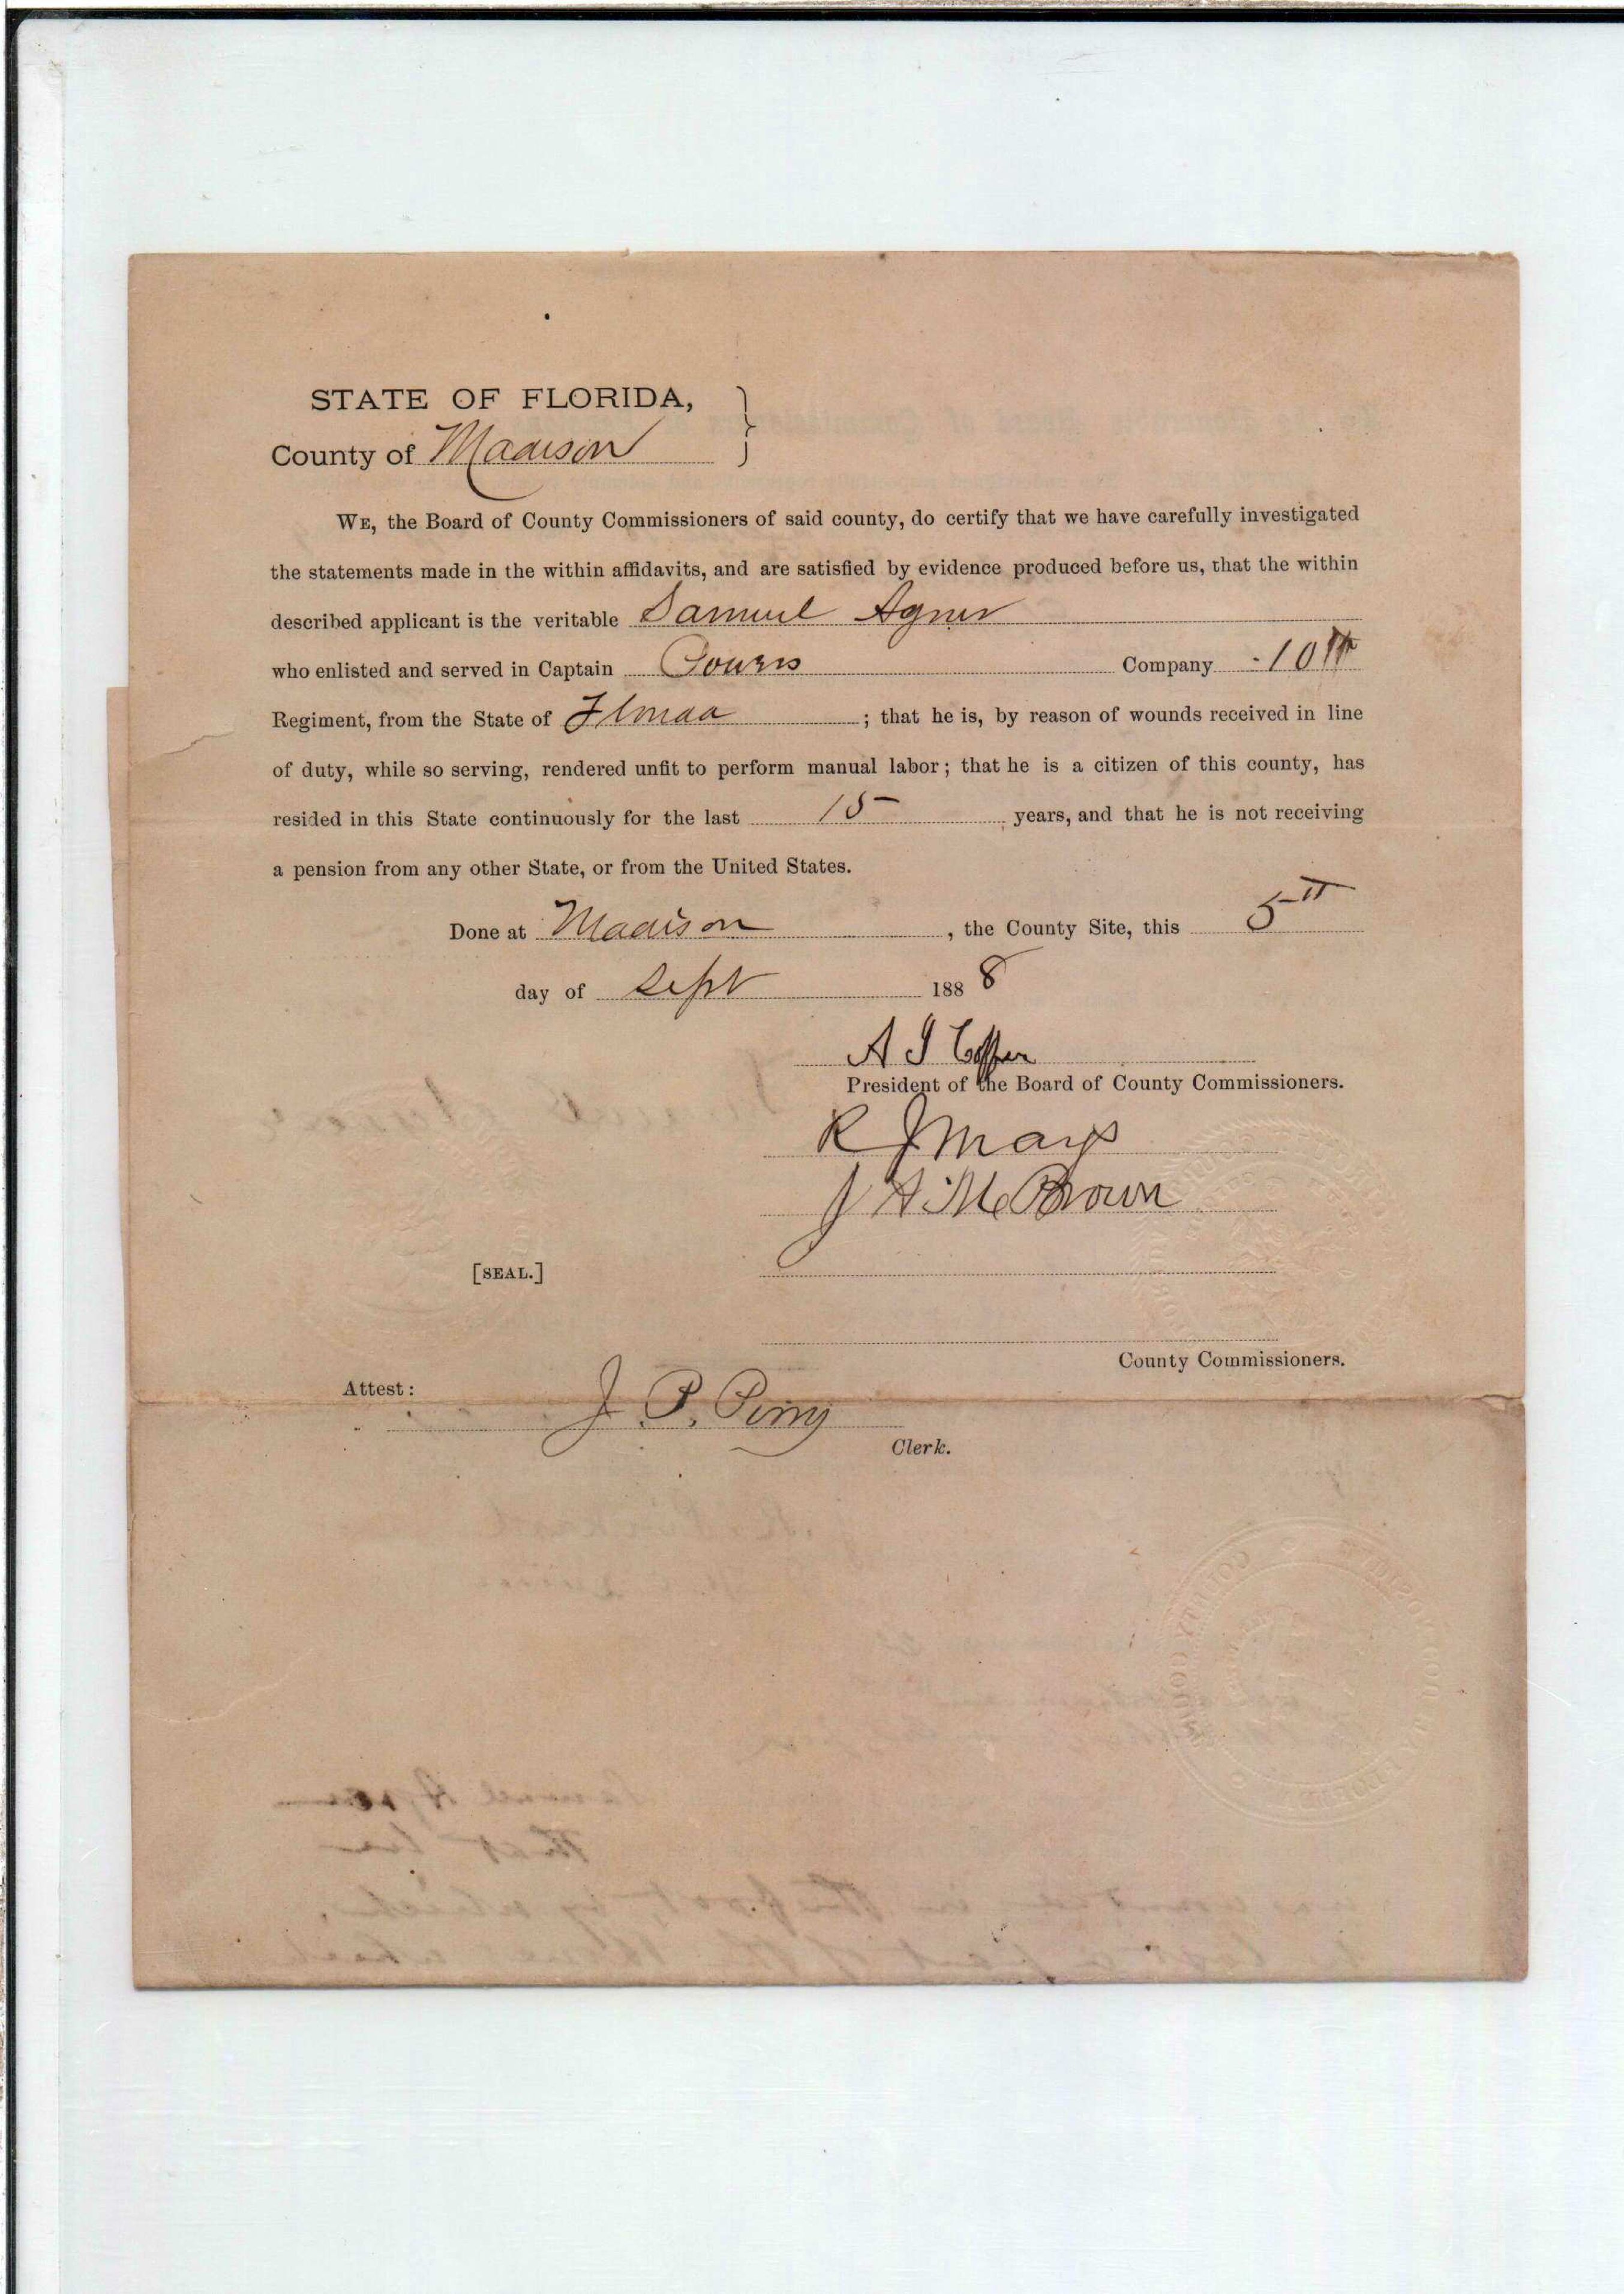 STATE OF FLORIDA,
County of Madison
WE, the Board of County Commissioners of said county, do certify that we have carefully investigated
the statements made in the within affidavits, and are satisfied by evidence produced before us, that the within
described applicant is the veritable Samuel Agner
who enlisted and served in Captain Company 10th
Regiment, from the State of Florida ; that he is, by reason of wounds received in line
of duty, while so serving, rendered unfit to perform manual labor; that he is a citizen of this county, has
resided in this State continuously for the last 15 years, and that he is not receiving
a pension from any other State, or from the United States.
Done at Madison , the County Site, this 5th
day of Sept 1888
A J
President of the Board of County Commissioners.
R J Mays
J A McBrown
[SEAL.]
County Commissioners.
Attest:
J. P. Perry
Clerk.